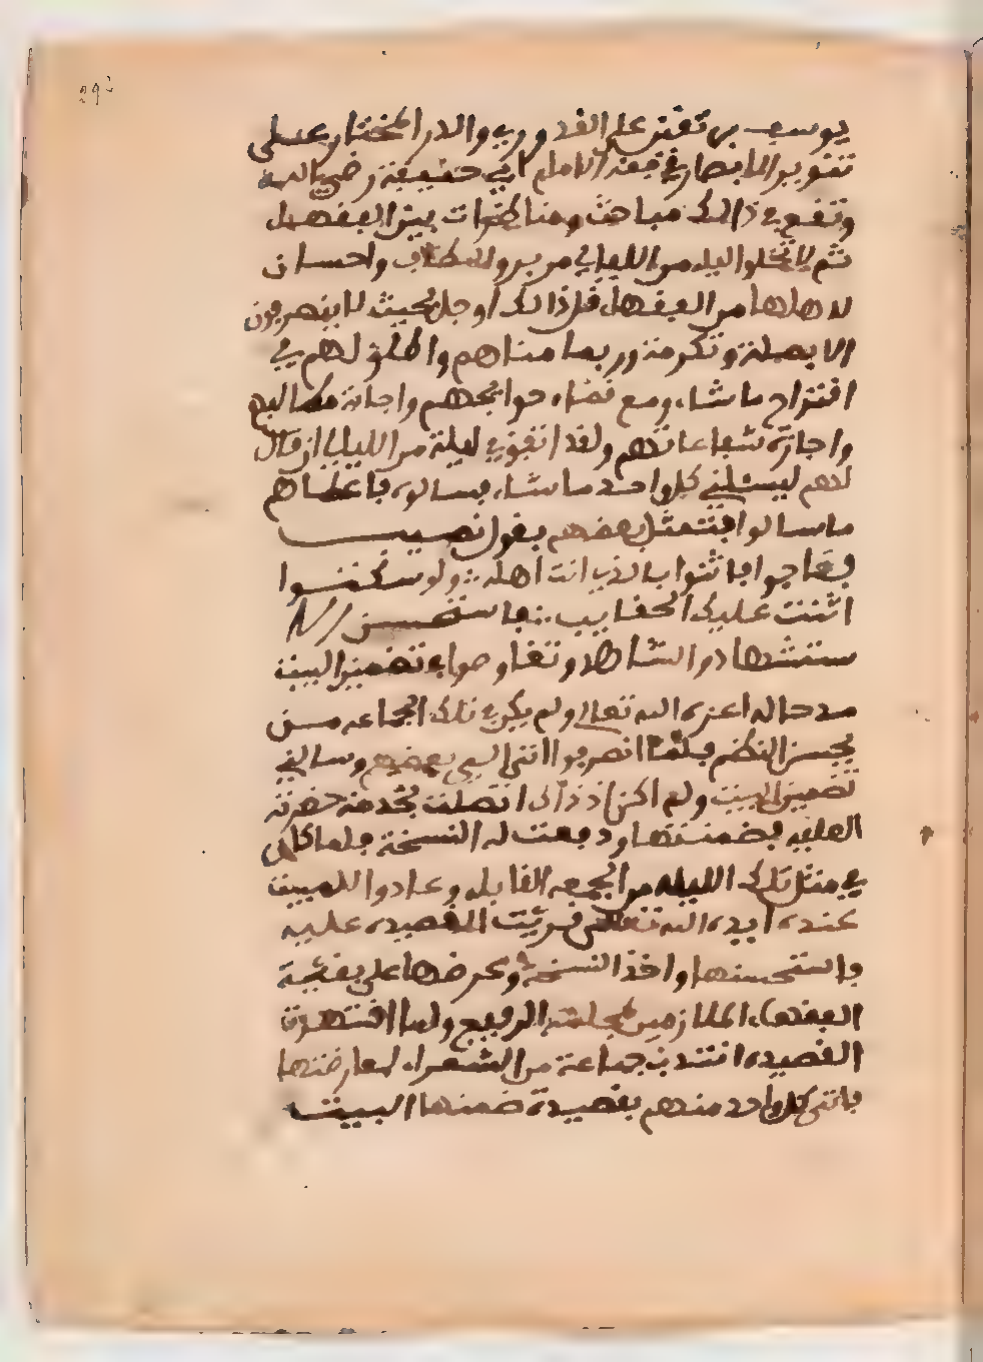 يوسف بن تغش على القدوري والدر المختار على
تنوير الابصار في فقه الامام ابي حنيفة رضي الله
وتقع في ذالك مباحث ومناظرات بين الفقهاء
ثم لا تخلوا ليله من الليالي من بر واحسان
لاهلها من الفقهاء قل ذالك او جل بحيث لا ينصرفون
الا بصلة وتكرمة وربما مناهم واطلق لهم في
اقتراح ما شاء ومع قضاء حوايجهم واجابة مطالبهم
واجازة شفاعاتهم ولقد اتفق في ليلة من الليالي ان قال
لهم ليسئلني كل واحد ما شاء فسالوه فاعطاهم
ما سالوا فتمثل بعضهم بقول نصيب
فعاجوا فاثنوا بالذي انت اهله ولو سكتوا
اثنت عليك الحقايب فاستحسن
ستشهاد والشاهد وتفاوضوا في تضمين البيت
مدحا له اعزه الله تعالى ولم يكن في تلك الجماعه من
يحسن النظم فلما انصرفوا اتى الي بعضهم وسالني
تضمين البيت ولم اكن اذ ذاك اتصلت بخدمة حضرته
العليه فضمنتها ودفعت له النسخة فلما كان
في مثل تلك الليله من الجمعه القابله وعادوا للمبيت
عنده ايده الله تعالى قريت القصيده عليه
واستحسنها واخذ النسخة وعرضها على بقية
الفقهاء الملازمين لمجلسه الرفيع ولما اشتهرت
القصيده انتدب جماعة من الشعراء لمعارضتها
فاتى كل واحد منهم بقصيدة ضمنها البيت